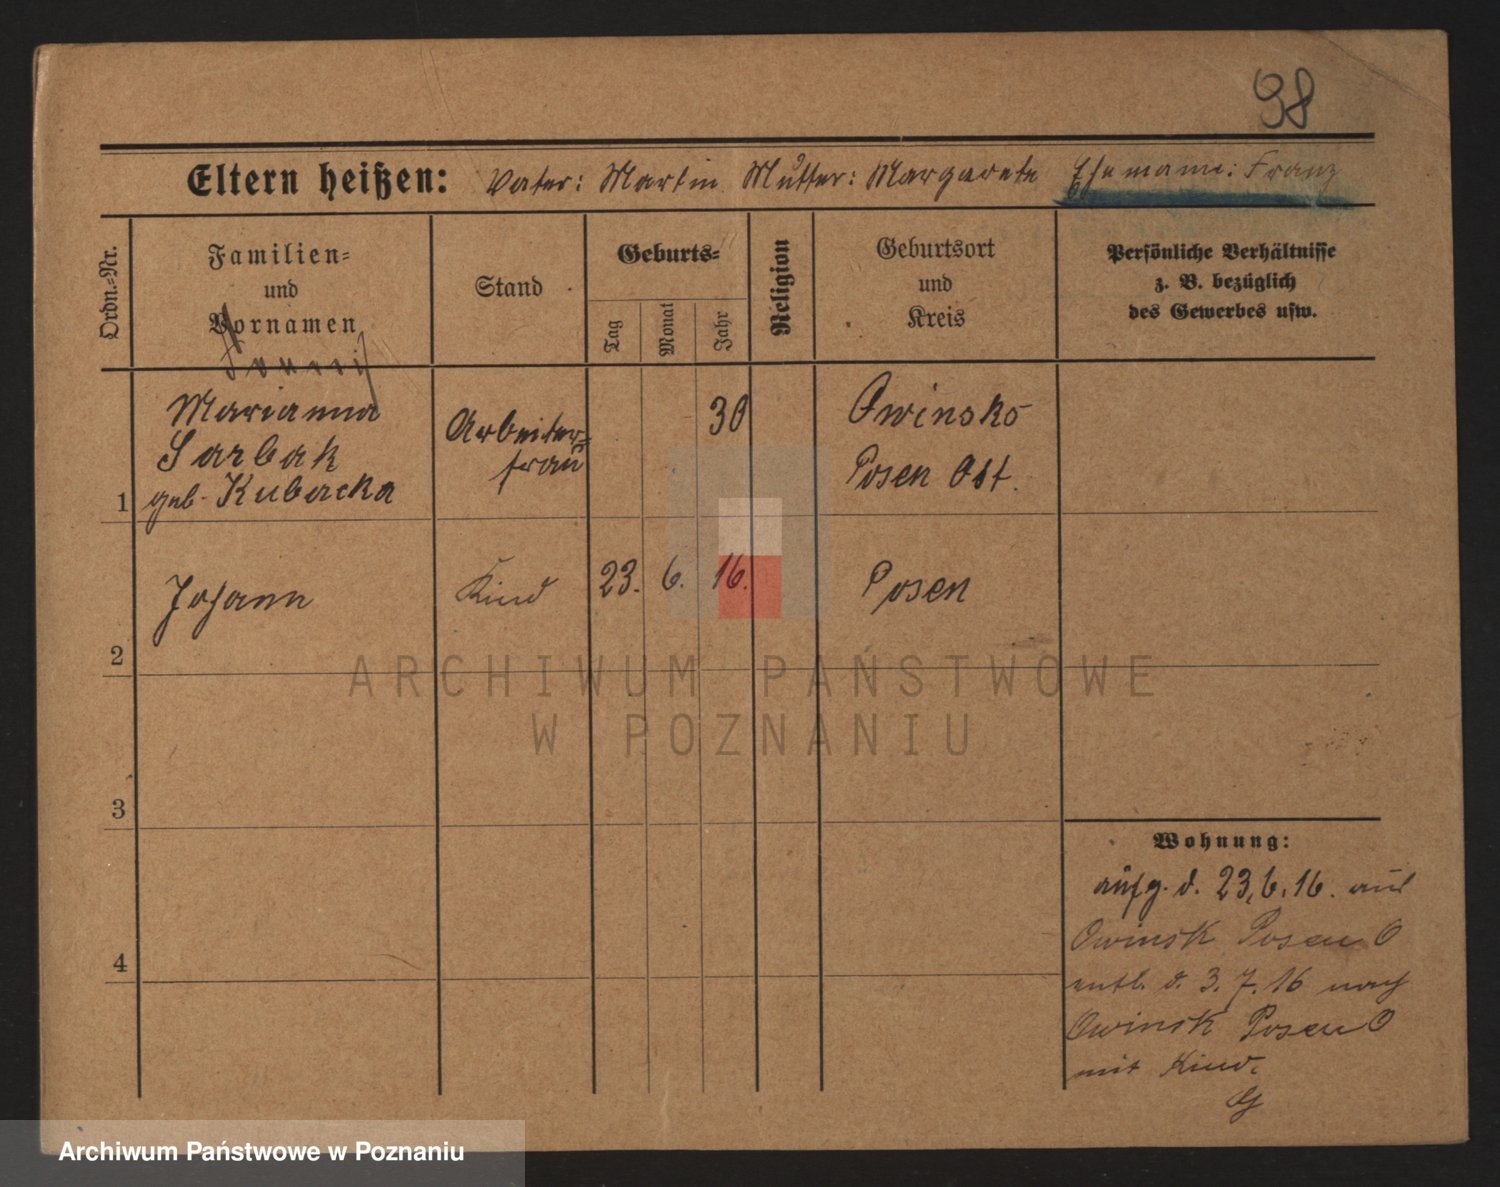 98
Eltern heißen: Vater: Martin Mutter: Margarete Ehemann: Franz
Ordn.-Nr.
Familien-
und
Vornamen
Stand
Geburts-
Tag
Monat
Jahr
Religion
Geburtsort
und
Kreis
Persönliche Verhältnisse
z. B. bezüglich
des Gewerbes usw.
1
Marianna
Sarbak
geb. Kubacka
Arbeiter-
frau
30
Owinsko
Posen Ost.
2
Johann
Kind
23.
6.
16.
Posen
3
4
Wohnung:
aufg. d. 23.6.16. aus
Owinsk Posen O
entl. d. 3.7.16 nach
Owinsk Posen O
mit Kind.
ARCHIWUM PAŃSTWOWE
W POZNANIU
Archiwum Państwowe w Poznaniu